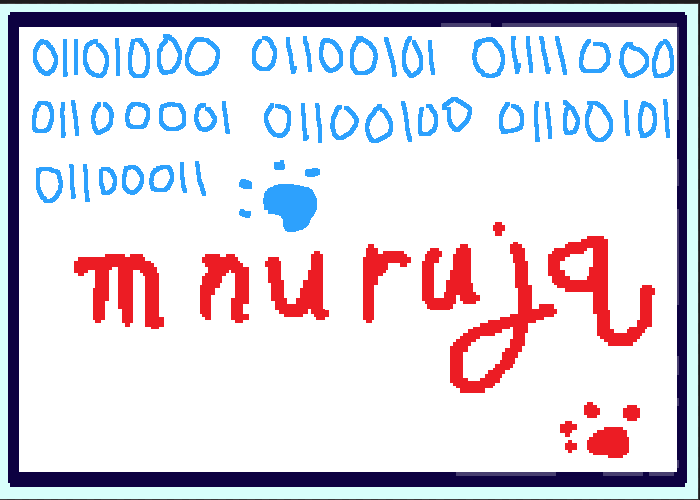 01101000 01100101 01111000
01100001 01100100 01100101
01100011
mnurują